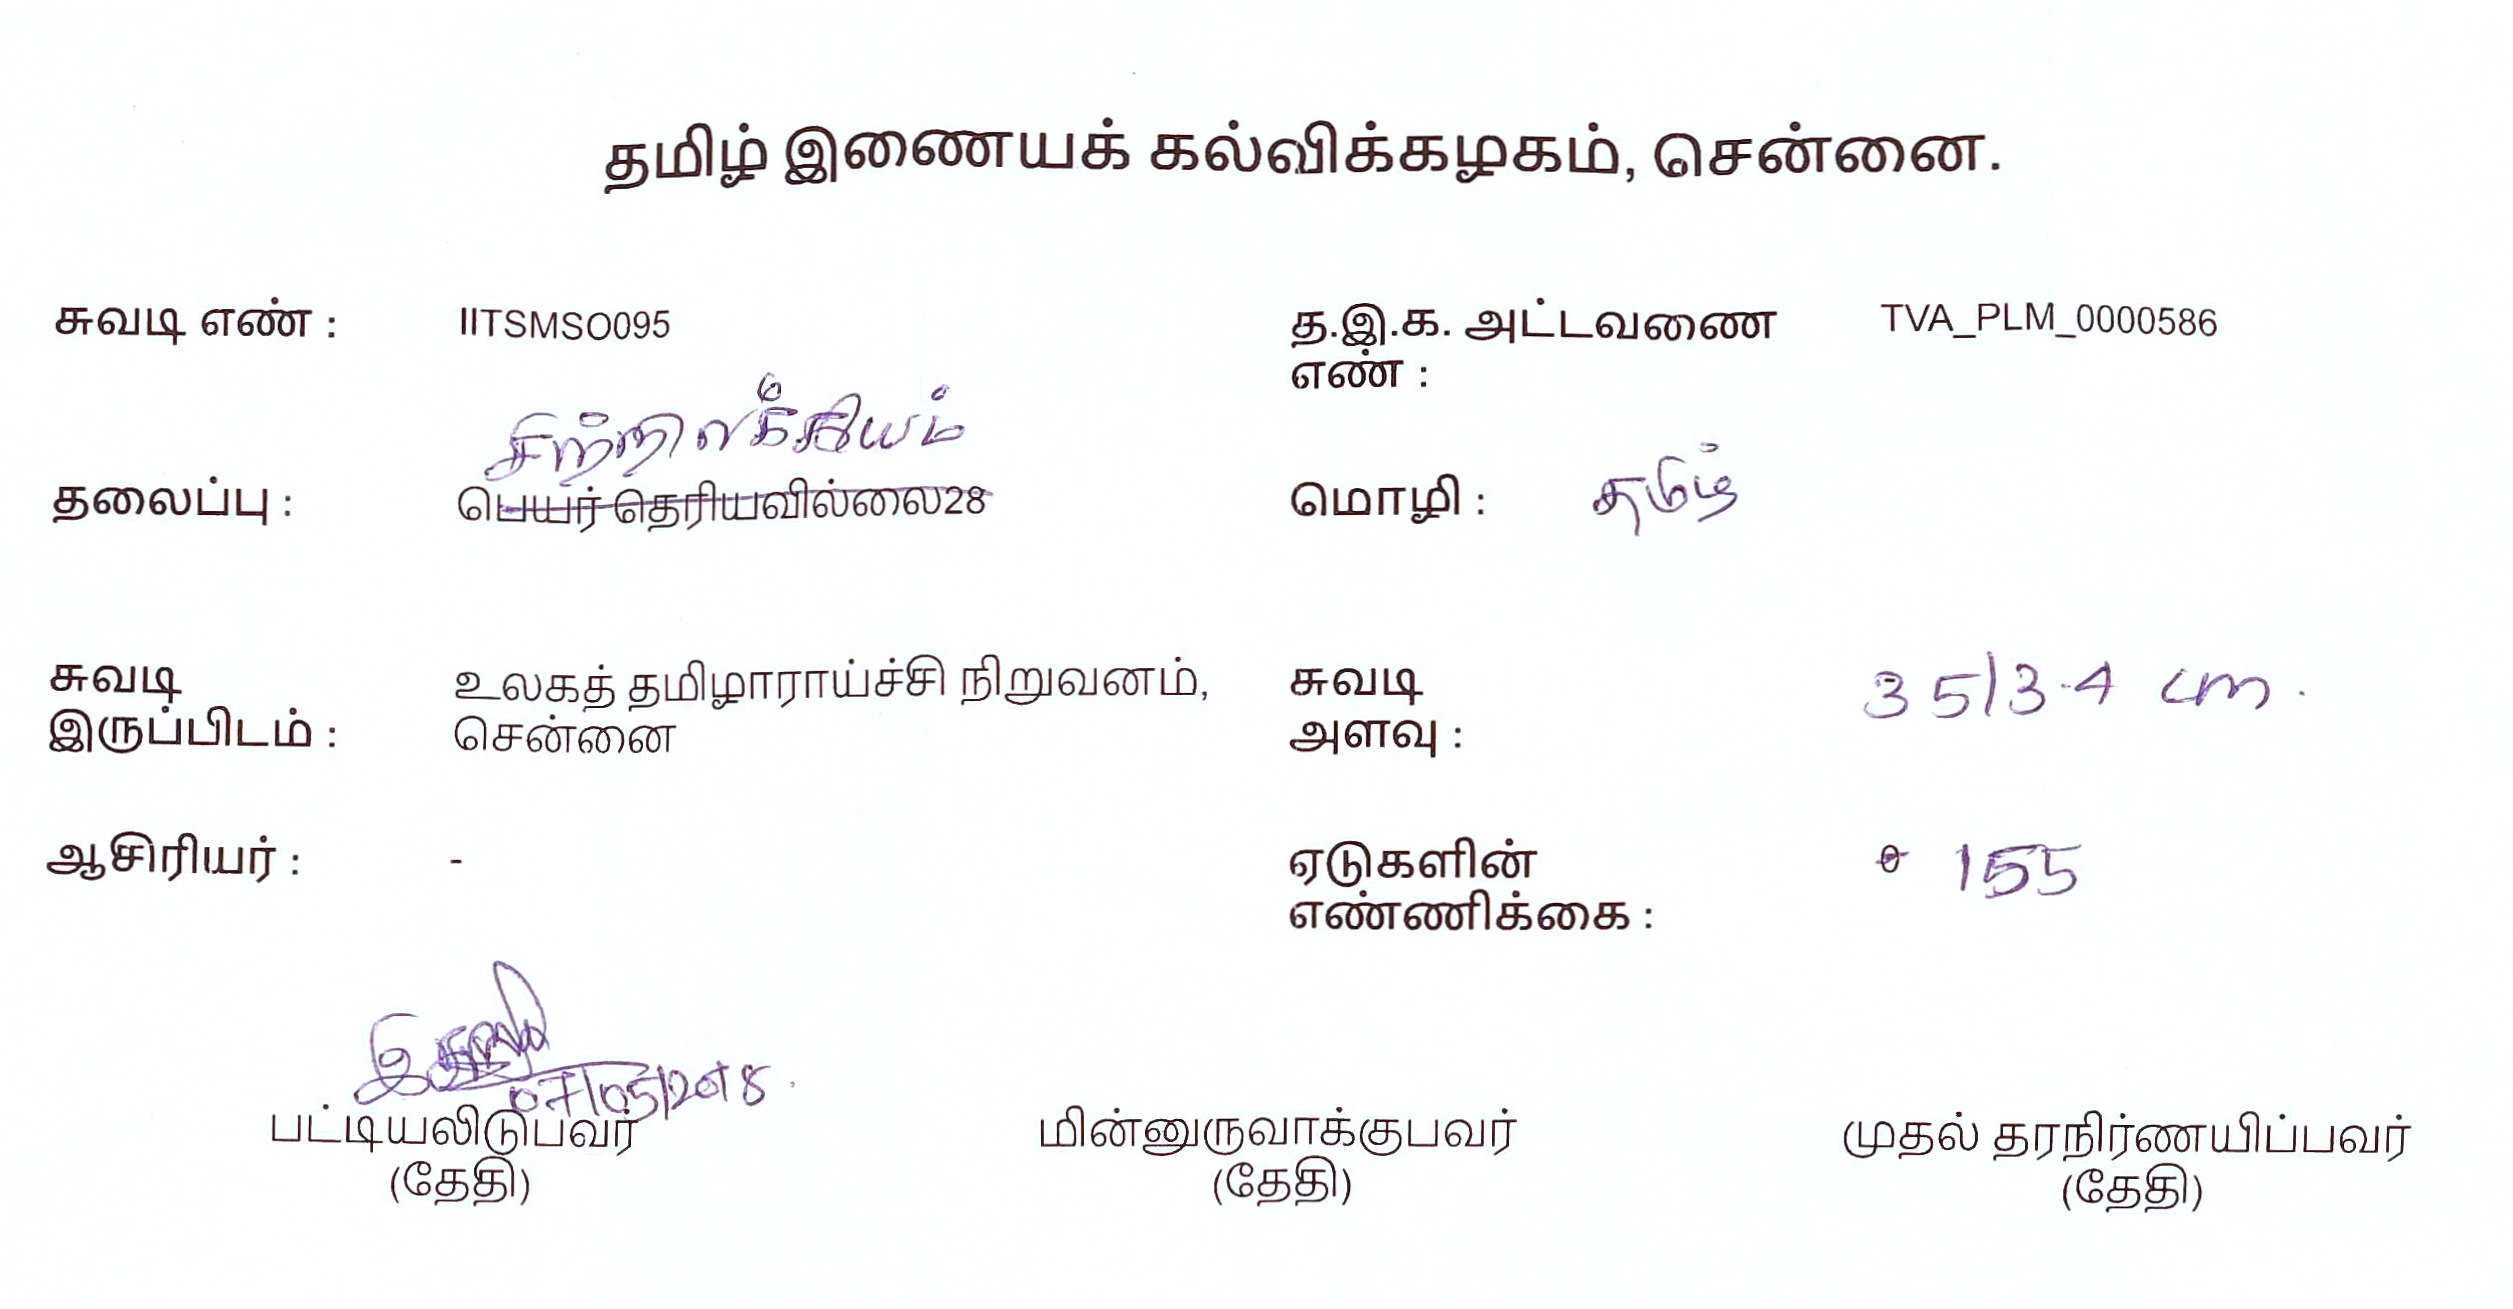 தமிழ் இணையக் கல்விக்கழகம், சென்னை.
சுவடி எண் : IITSMSO095 த.இ.க. அட்டவணை எண் : TVA_PLM_0000586
சிற்றிலக்கியம்
தலைப்பு : பெயர் தெரியவில்லை28 மொழி : தமிழ்
சுவடி உலகத் தமிழாராய்ச்சி நிறுவனம், சுவடி 35/3.4 cm.
இருப்பிடம் : சென்னை அளவு :
ஆசிரியர் : - ஏடுகளின் 155
எண்ணிக்கை :
07/05/2018.
பட்டியலிடுபவர் மின்னுருவாக்குபவர் முதல் தரநிர்ணயிப்பவர்
(தேதி) (தேதி) (தேதி)